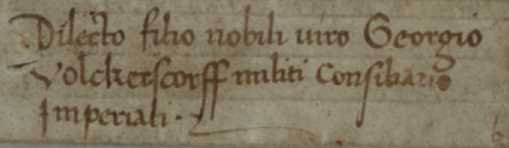 Dilecto filio nobili viro Georgio
Volckerscorff militi Consiliario
Imperiali.